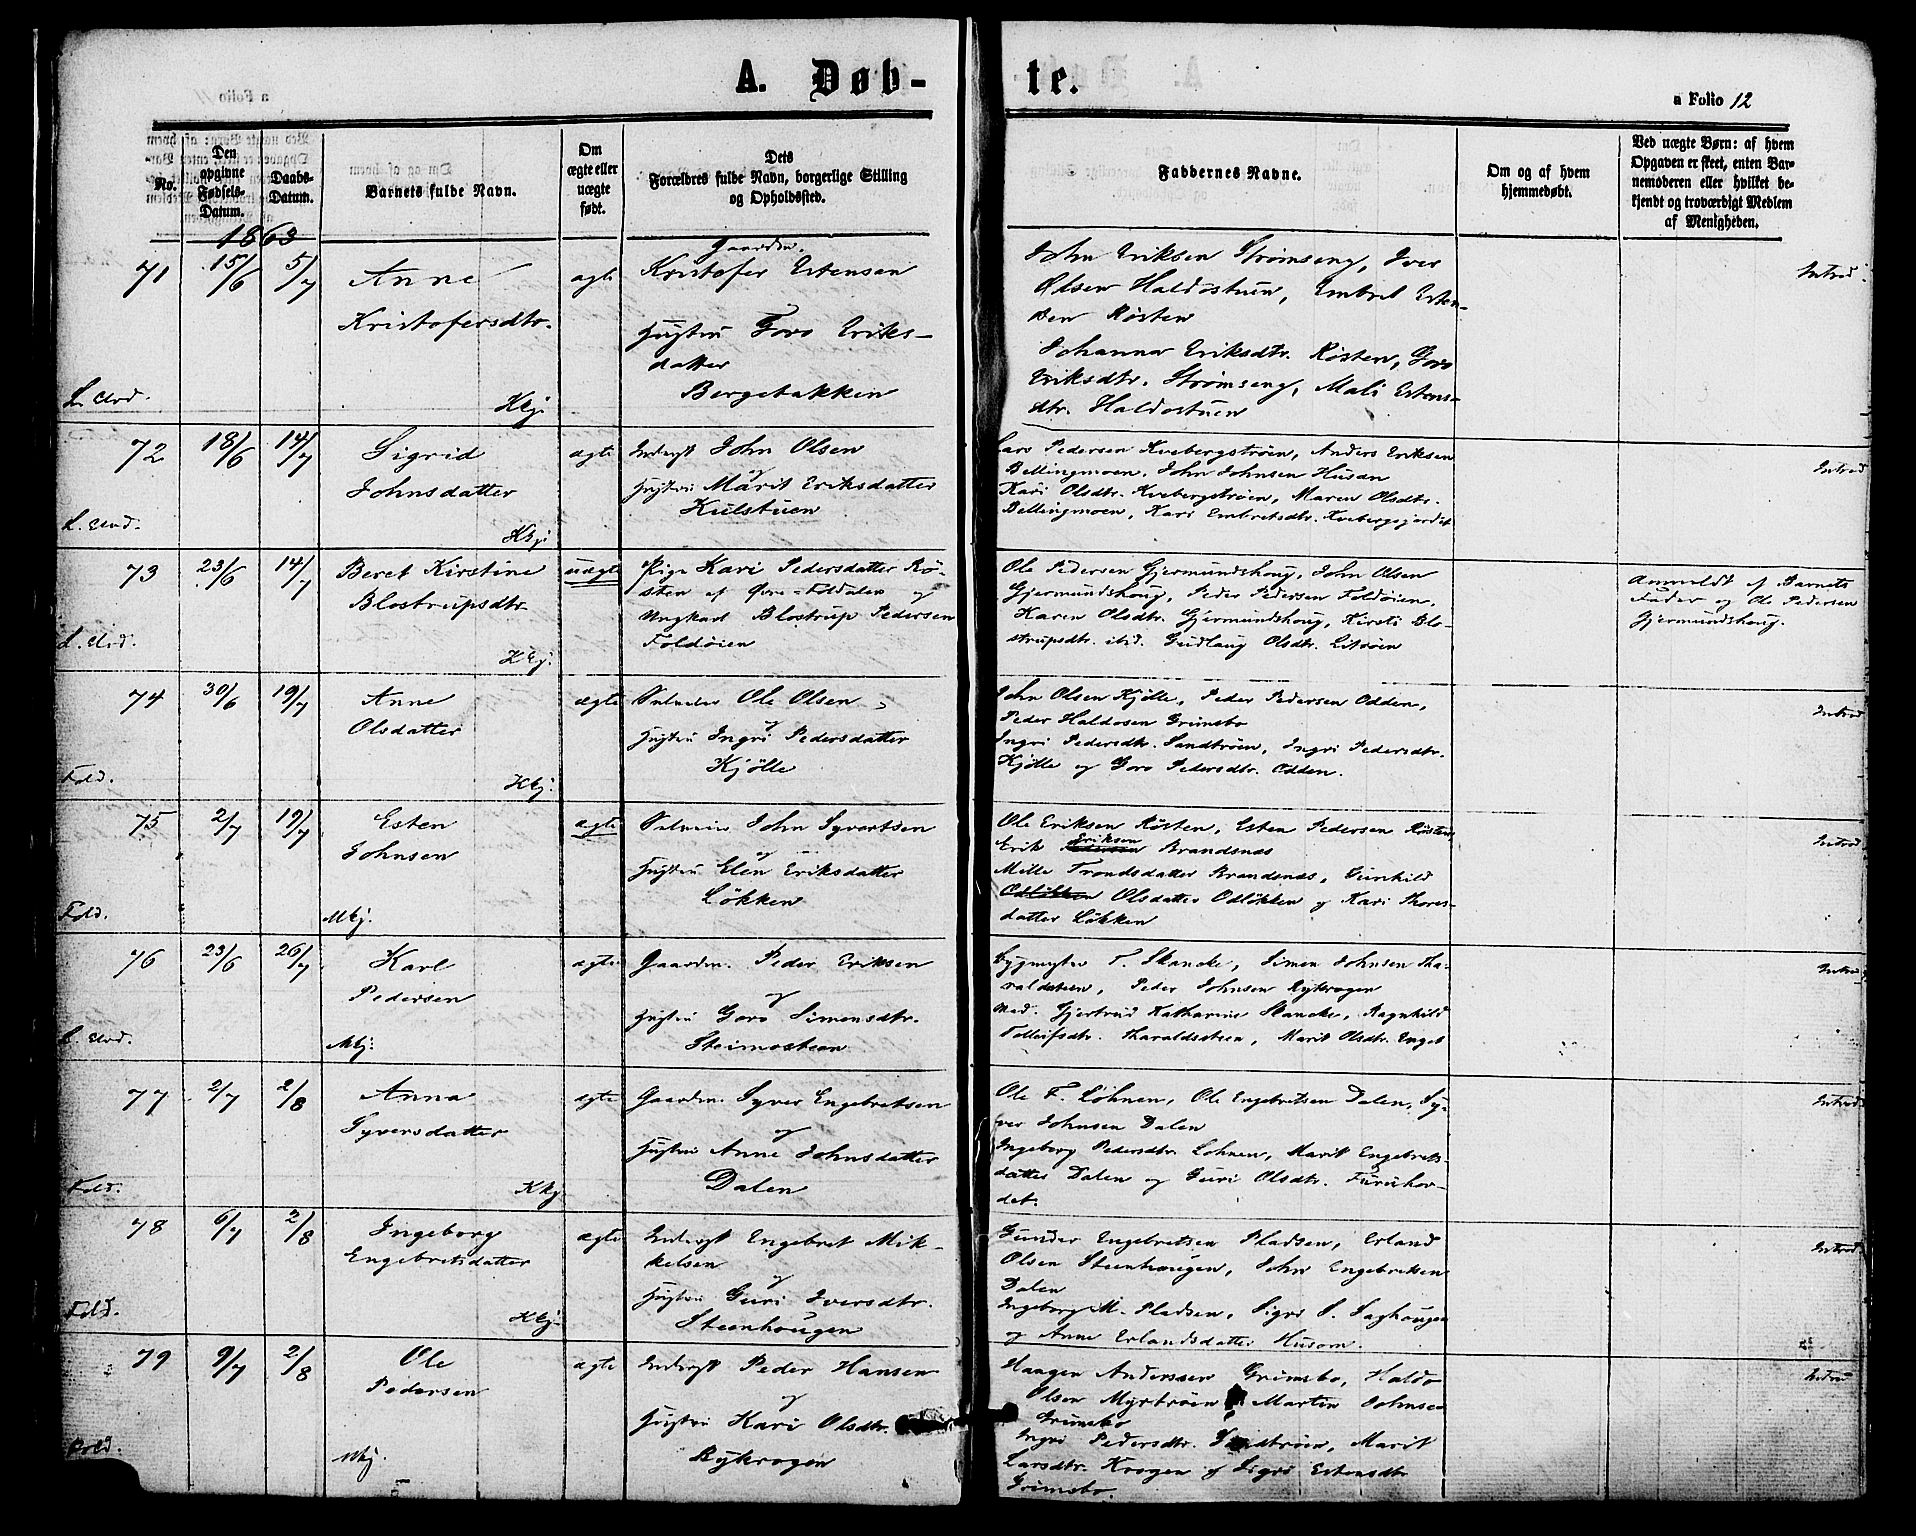 A. Døb-
te.
a Folio 12
No.
Den
opgivne
Fødsels-
Datum.
Daabs-
Datum.
Barnets fulde Navn.
Om
ægte eller
uægte
født.
Dets
Forældres fulde Navn, borgerlige Stilling
og Opholdssted.
Faddernes Navne.
Om og af hvem
hjemmedøbt.
Ved uægte Børn: af hvem
Opgaven er skeet, enten Bar-
nemoderen eller hvilket be-
kjendt og troværdigt Medlem
af Menigheden.
1863
71
15/6
5/7
Anne
Kristofersdtr.
Kkj.
L. Elvd.
ægte
Gaardm.
Kristofer Estensen
Hustru Goro Eriks-
datter
Bergebakken
John Eriksen Strømseng, Iver
Olsen Haldostuen, Embret Esten-
sen Røsten
Johanna Eriksdtr. Røsten, Goro
Eriksdtr. Strømseng, Mali Estens-
dtr. Haldostuen
Introd.
72
18/6
14/7
Sigrid
Johnsdatter
Kkj.
L. Elvd.
ægte
Inderst John Olsen
og
Hustru Marit Eriksdatter
Kulstuen
Lars Pedersen Kvebergstrøen, Anders Eriksen
Bellingmoen, John Johnsen Husan
Kari Olsdtr. Kvebergstrøen, Maren Olsdtr.
Bellingmoen, Kari Embretsdtr. Kvebergsjordet
Introd
73
23/6
14/7
Beret Kirstine
Blostrupsdtr.
Kkj.
L. Elvd.
uægte
Pige Kari Pedersdatter Rø-
sten af Øvre-Foldalen og
Ungkarl Blostrup Pedersen
Foldøien
Ole Pedersen Gjermundshoug, John Olsen
Gjermundshoug, Peder Pedersen Foldøien,
Karen Olsdtr. Gjermundshoug, Kirsti Blo-
strupsdtr. ibid. Gudlaug Olsdtr. Litrøen
Anmeldt af Barnets
Fader og Ole Pedersen
Gjermundshoug.
74
30/6
19/7
Anne
Olsdatter
Kkj.
Fold.
ægte
Selveier Ole Olsen
og
Hustru Ingri Pedersdatter
Kjølle
John Olsen Kjølle, Peder Pedersen Odden,
Peder Haldosen Grimsbo
Ingri Pedersdtr. Sandtrøen, Ingri Pedersdtr.
Kjølle og Goro Pedersdtr. Odden.
Introd
75
2/7
19/7
Esten
Johnsen
Mkj.
Fold.
ægte
Selveier John Syvertsen
og
Hustru Elen Eriksdatter
Løkken
Ole Eriksen Røsten, Esten Pedersen Røsten,
Erik Eriksen Brandsnæs
Mille Trondsdatter Brandsnæs, Gunhild
Olsdatter Odløkken og Kari Thores-
datter Løkken
Introd
76
23/6
26/7
Karl
Pedersen
Mkj.
L. Elvd.
ægte
Gaardm. Peder Eriksen
og
Hustru Goro Simensdtr.
Steimosteen
Bygmester T. Skancke, Simen Johnsen Tha-
raldsteen, Peder Johnsen Rykrogen
Mad. Gjertrud Katharine Skancke, Ragnhild
Tolleifsdtr. Tharaldsteen, Marit Olsdtr. Enget
Introd
77
2/7
2/8
Anna
Syversdatter
Kkj
Fold.
ægte
Gaardm. Syver Engebretsen
og
Hustru Anne Johnsdatter
Dalen
Ole F. Løhnen, Ole Engebretsen Dalen, Sy-
ver Johnsen Dalen
Ingeborg Pedersdtr. Løhnen, Marit Engebrets-
datter Dalen og Guri Olsdtr. Furuhov-
det.
Introd
78
6/7
2/8
Ingeborg
Engebretsdatter
Kkj.
Fold.
ægte
Inderst Engebret Mik-
kelsen
og
Hustru Guri Iversdtr.
Steenhougen
Gunder Engebretsen Pladsen, Erland
Olsen Steenhougen, John Engebretsen
Dalen
Ingeborg M. Pladsen, Sigri S. Saghougen
og Anne Erlandsdatter Husom.
Introd
79
9/7
2/8
Ole
Pedersen
Mkj.
Fold.
ægte
Inderst Peder Hansen
og
Hustru Kari Olsdtr.
Rykrogen
Haagen Anderssen Grimsbo, Haldo
Olsen Myrtrøen, Martin Johnsen
Grimsbo
Ingri Pedersdtr. Sandtrøen, Marit
Larsdtr. Krogen og Sigri Estensdtr
Grimsbo.
Introd